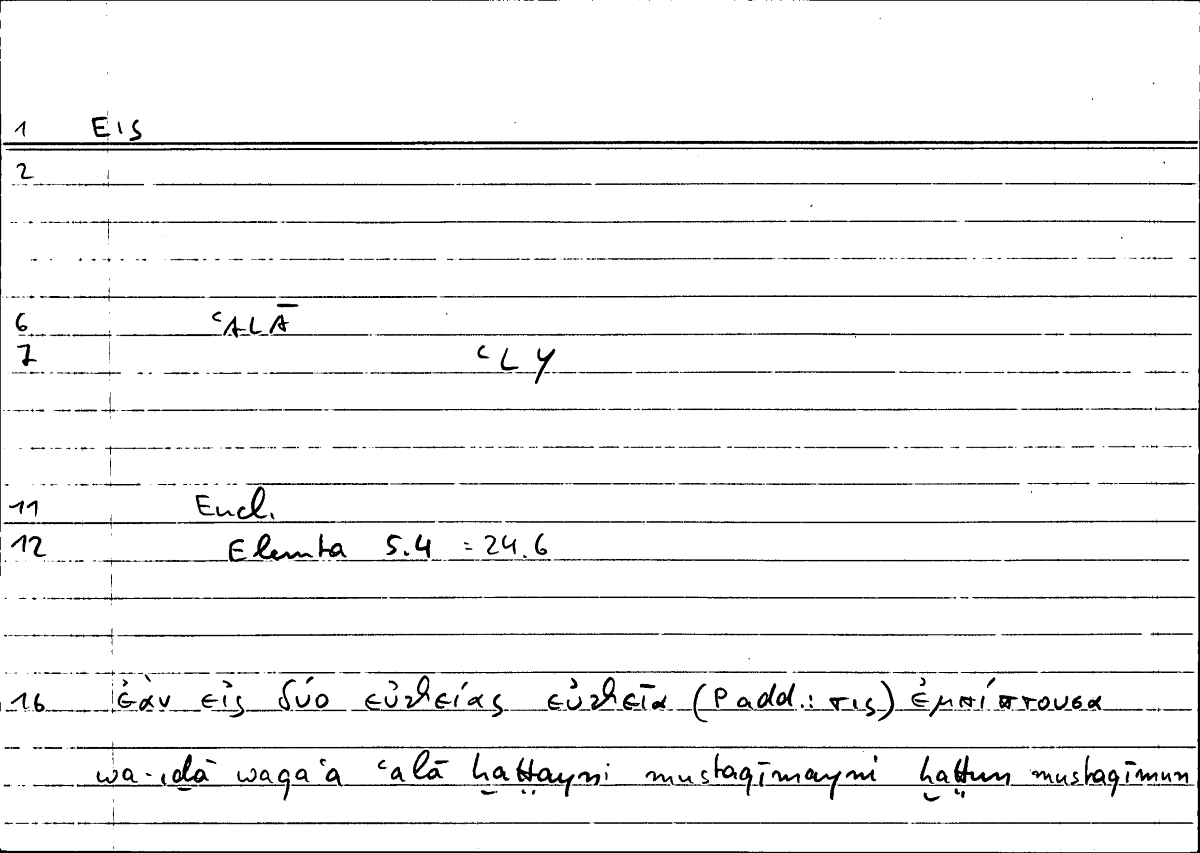 1 Εις
2
6 ʿALĀ
7 ʿLY
11 Eucl.
12 Elementa 5.4 = 24.6
16 ἐὰν εἰς δύο εὐθείας εὐθεῖα (P add.: τις) ἐμπίπτουσα
wa-iḏā waqaʿa ʿalā ḫaṭṭayni mustaqīmayni ḫaṭṭun mustaqīmun